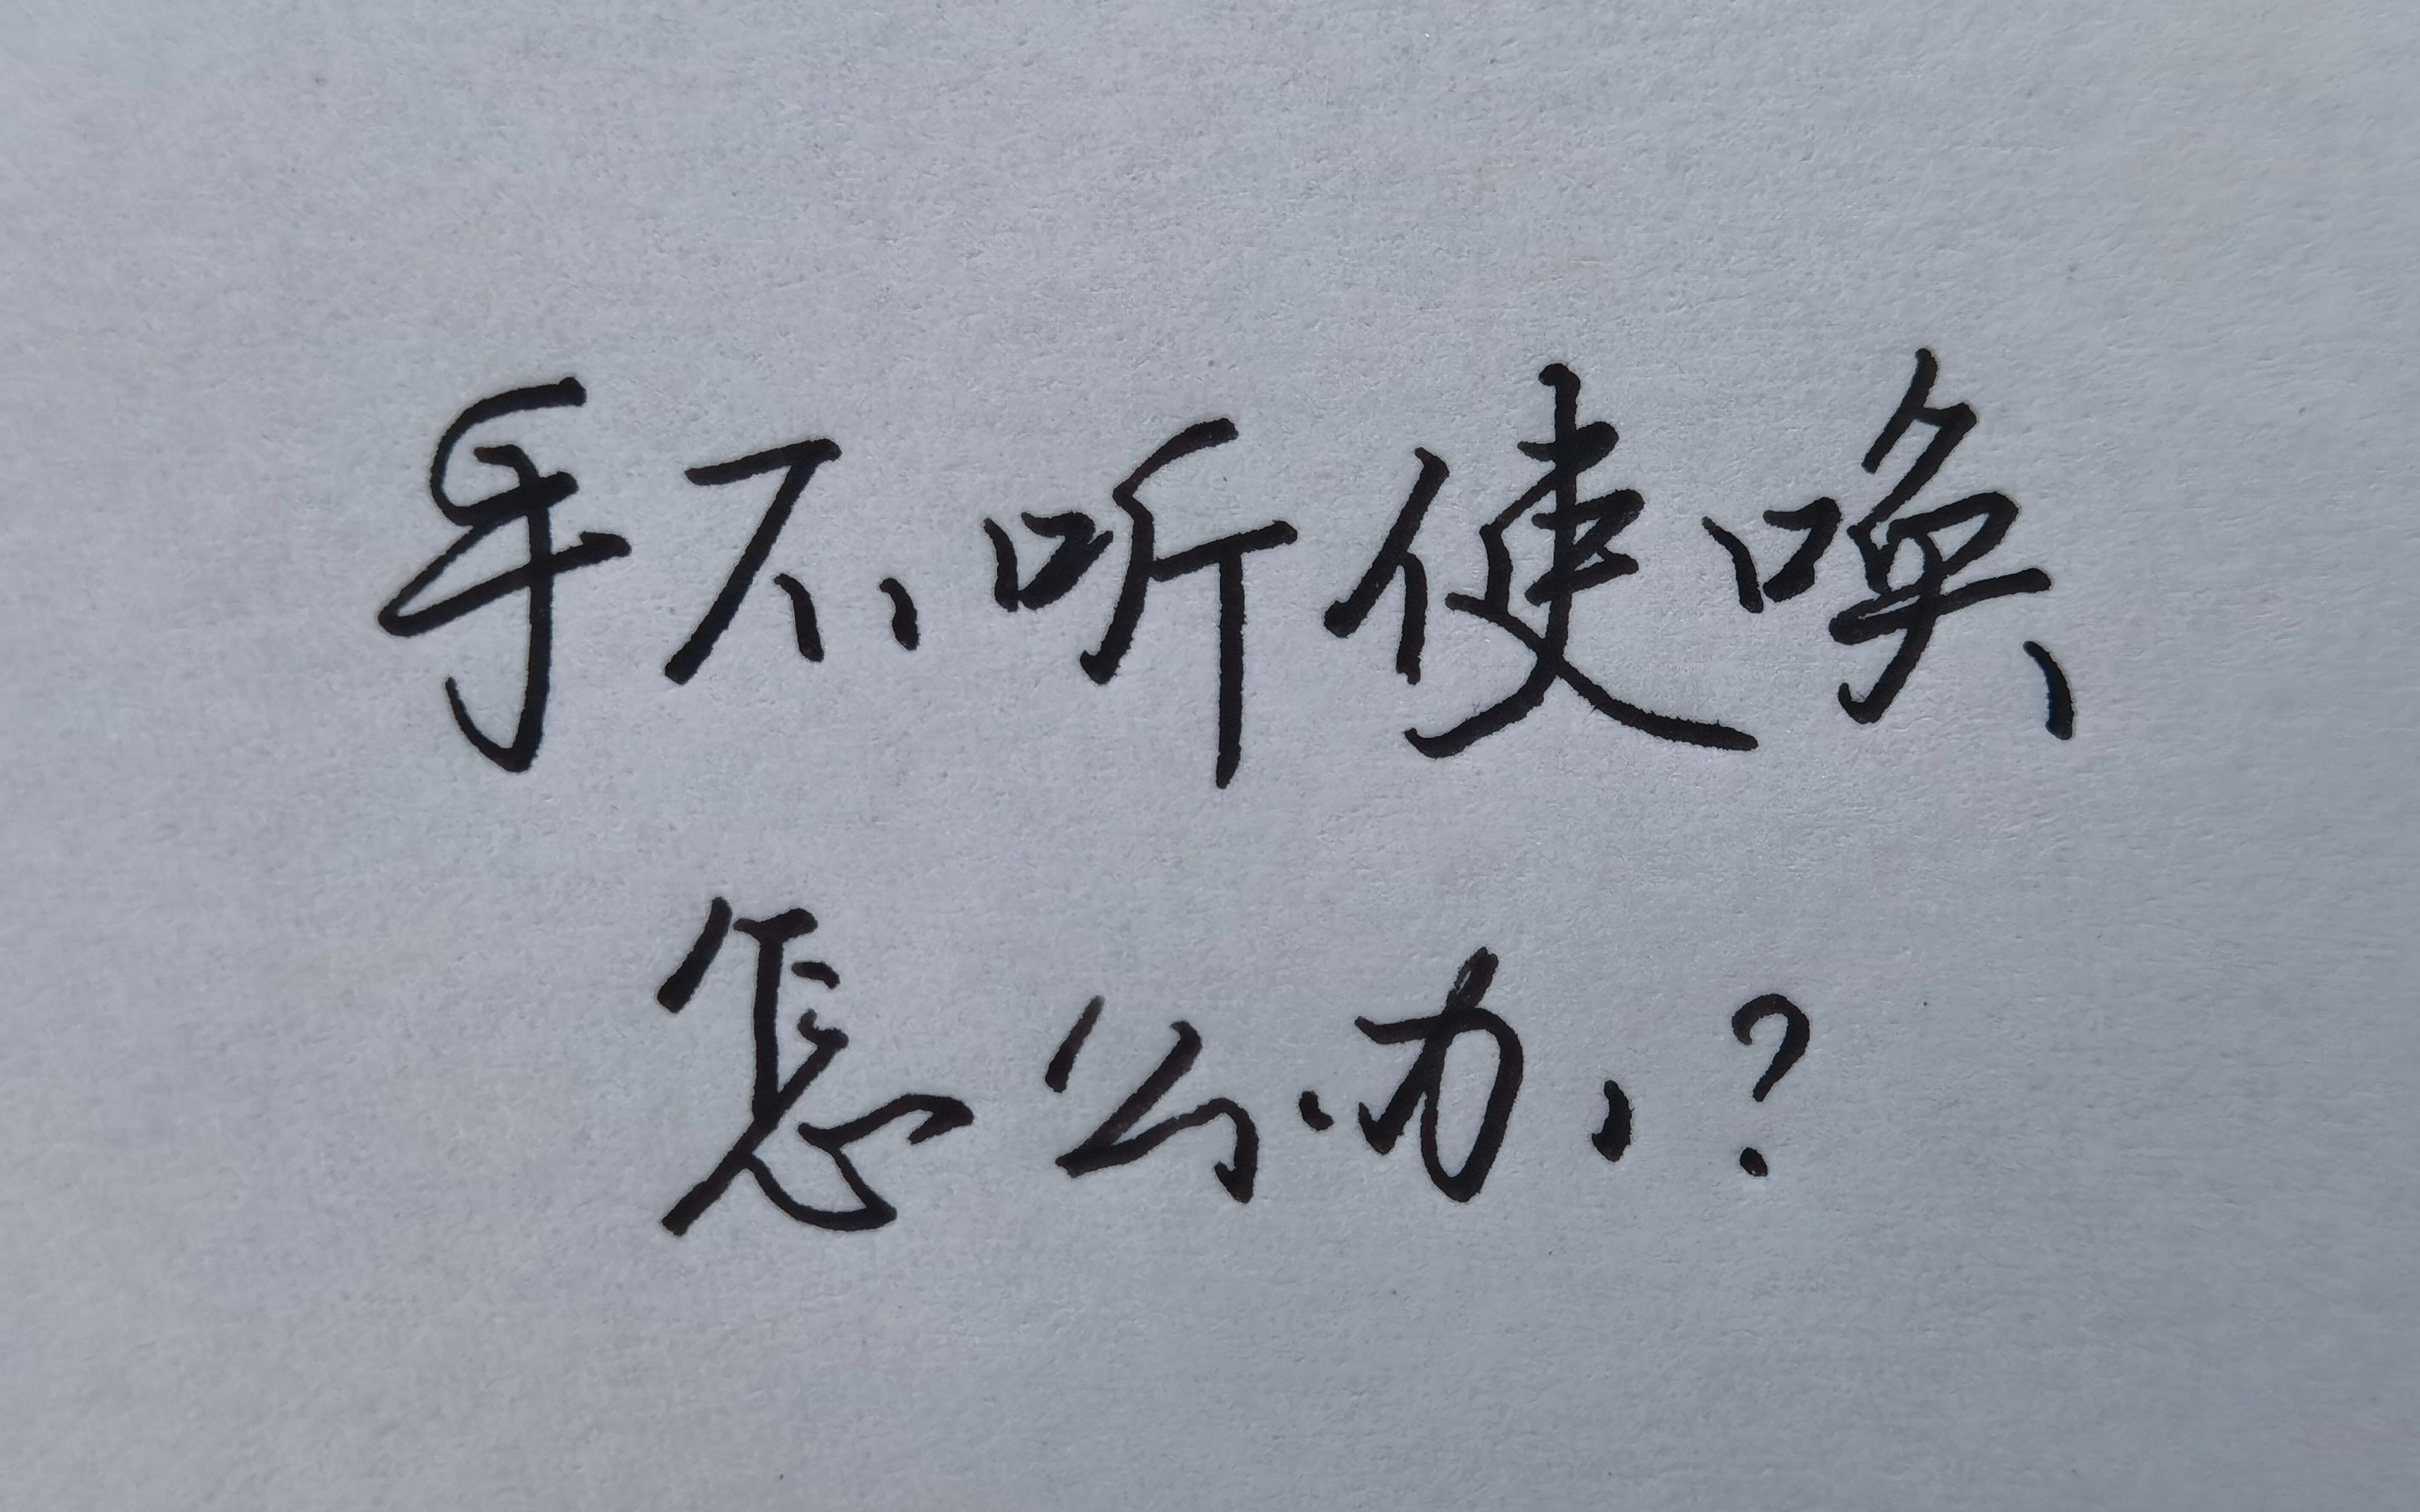 手不听使唤
怎么办?